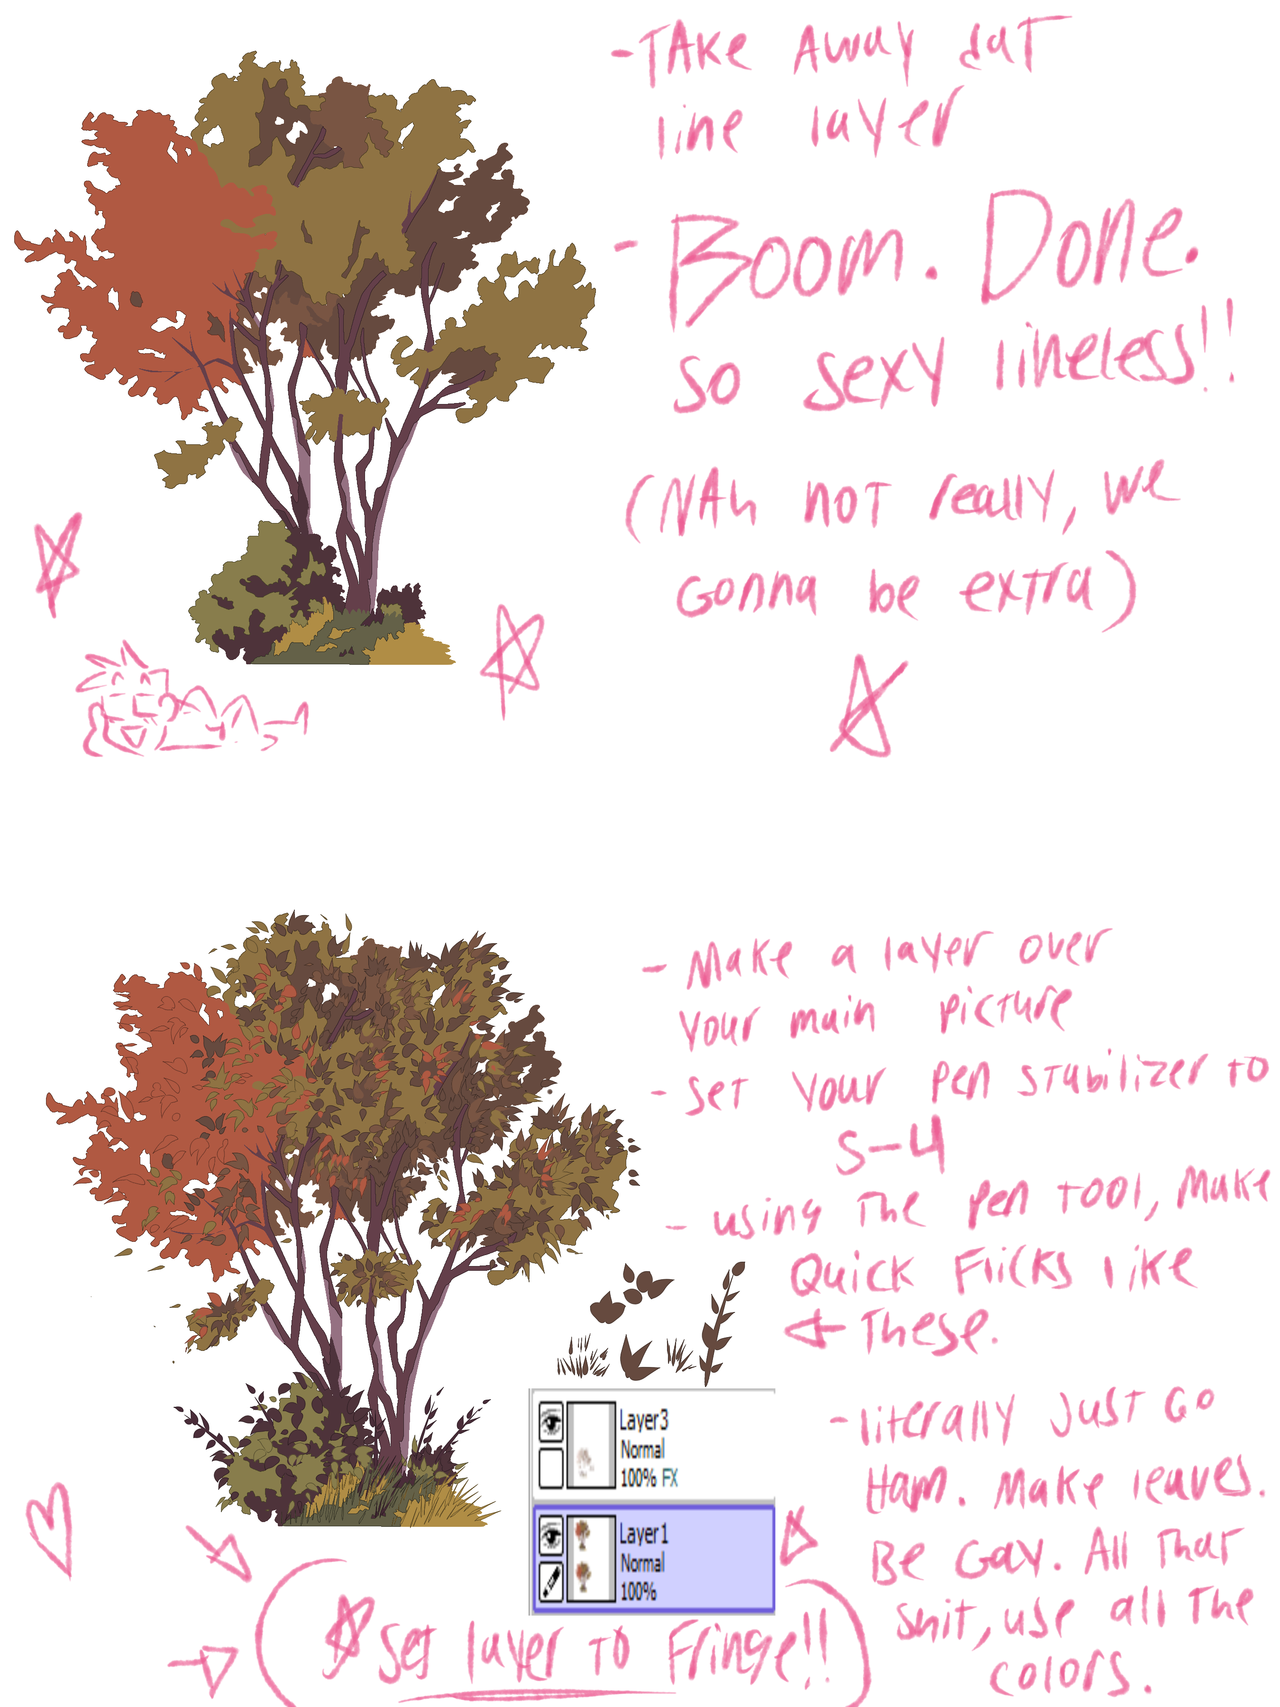 -TAke Away dat
line layer
- Boom. Done.
so sexy lineless!!
(NAh not really, we
Gonna be extra)
- Make a layer over
your main picture
- Set your pen stabilizer to
S-4
- using the pen tool, make
Quick Flicks like
these.
- literally just Go
Ham. Make leaves.
Be Gay. All that
shit, use all the
colors.
Layer3
Normal
100% FX
Layer1
Normal
100%
Set layer to Fringe!!